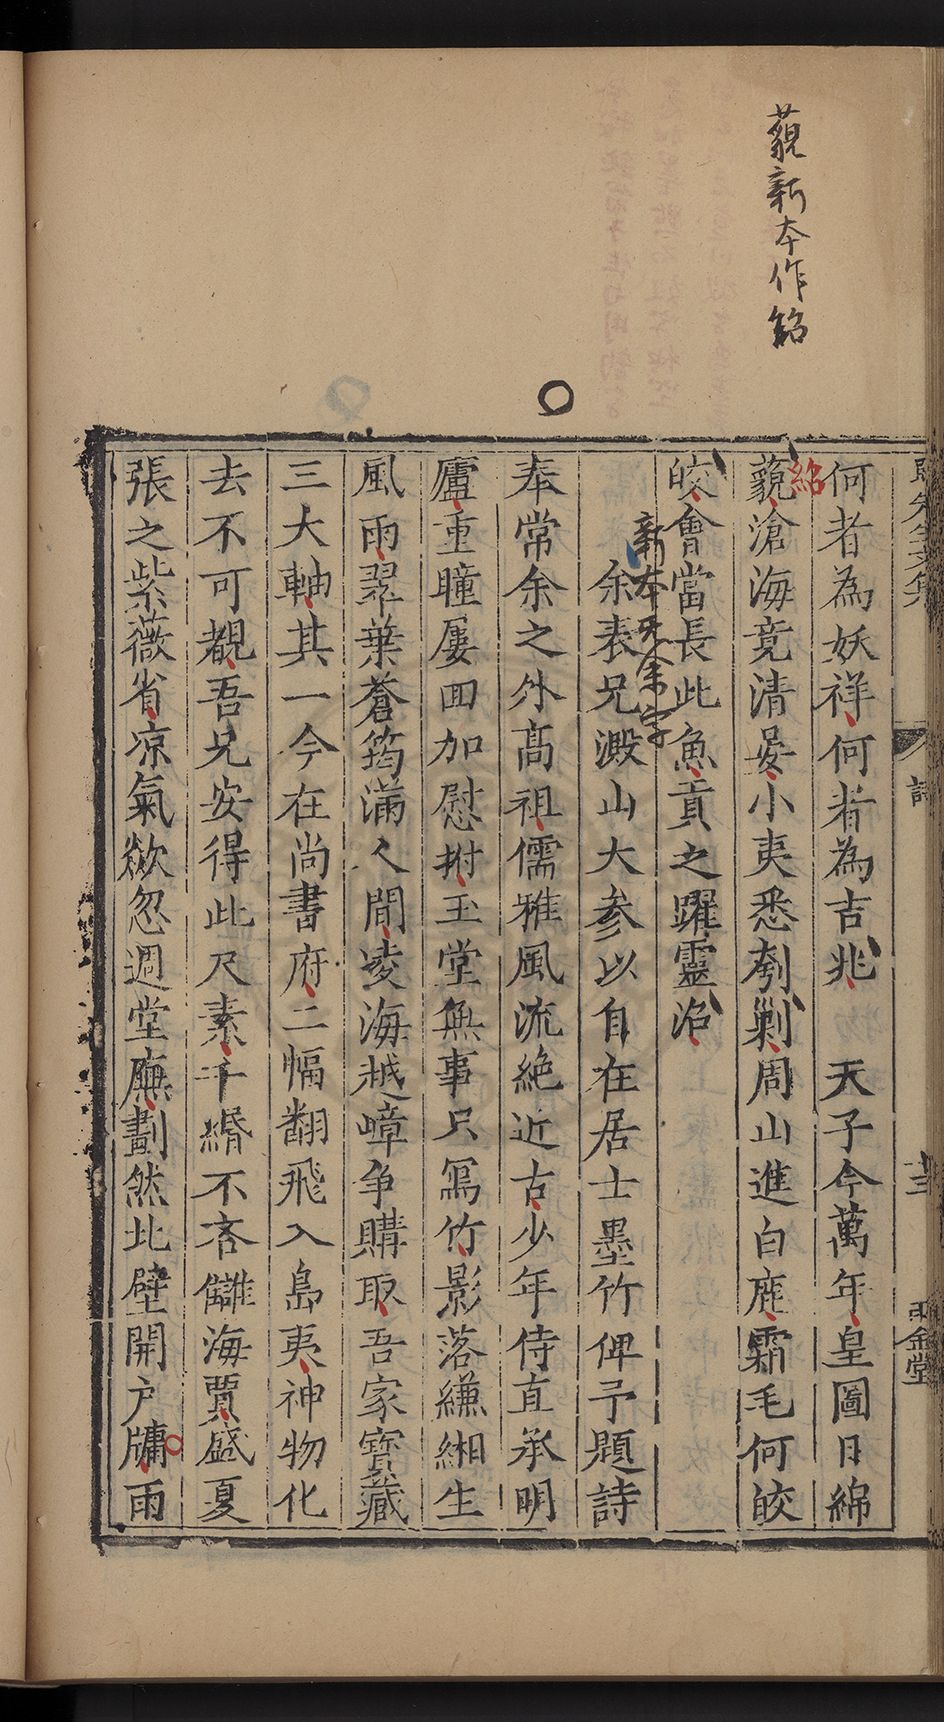 藐新本作紹
何者為妖祥何者為吉兆　天子今萬年皇圖日綿
紹
藐滄海竟清晏小夷悉刳剿周山進白鹿霜毛何皎
皎會當長此魚貢之躍靈沼
新本無余字
余表兄澱山大參以自在居士墨竹俾予題詩
奉常余之外髙祖儒雅風流絶近古少年侍直承明
廬重瞳屢回加慰拊玉堂無事只寫竹影落縑緗生
風雨翠葉蒼筠滿人間凌海越嶂争購取吾家寳藏
三大軸其一今在尚書府二幅翻飛入島夷神物化
去不可覩吾兄安得此尺素千緡不吝讎海賈盛夏
張之紫薇省凉氣歘忽週堂廡劃然北壁開户牗雨
詩
金堂